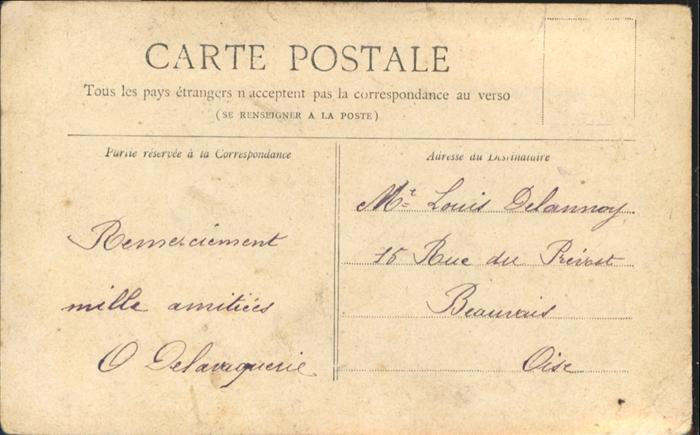 CARTE POSTALE
Tous les pays étrangers n'acceptent pas la correspondance au verso
(SE RENSEIGNER A LA POSTE)
Partie réservée à la Correspondance
Remerciement
mille amitiées
O Delavaquerie
Adresse du Destinataire
Mr Louis Delannoy
15 Rue du Prévost
Beauvais
Oise